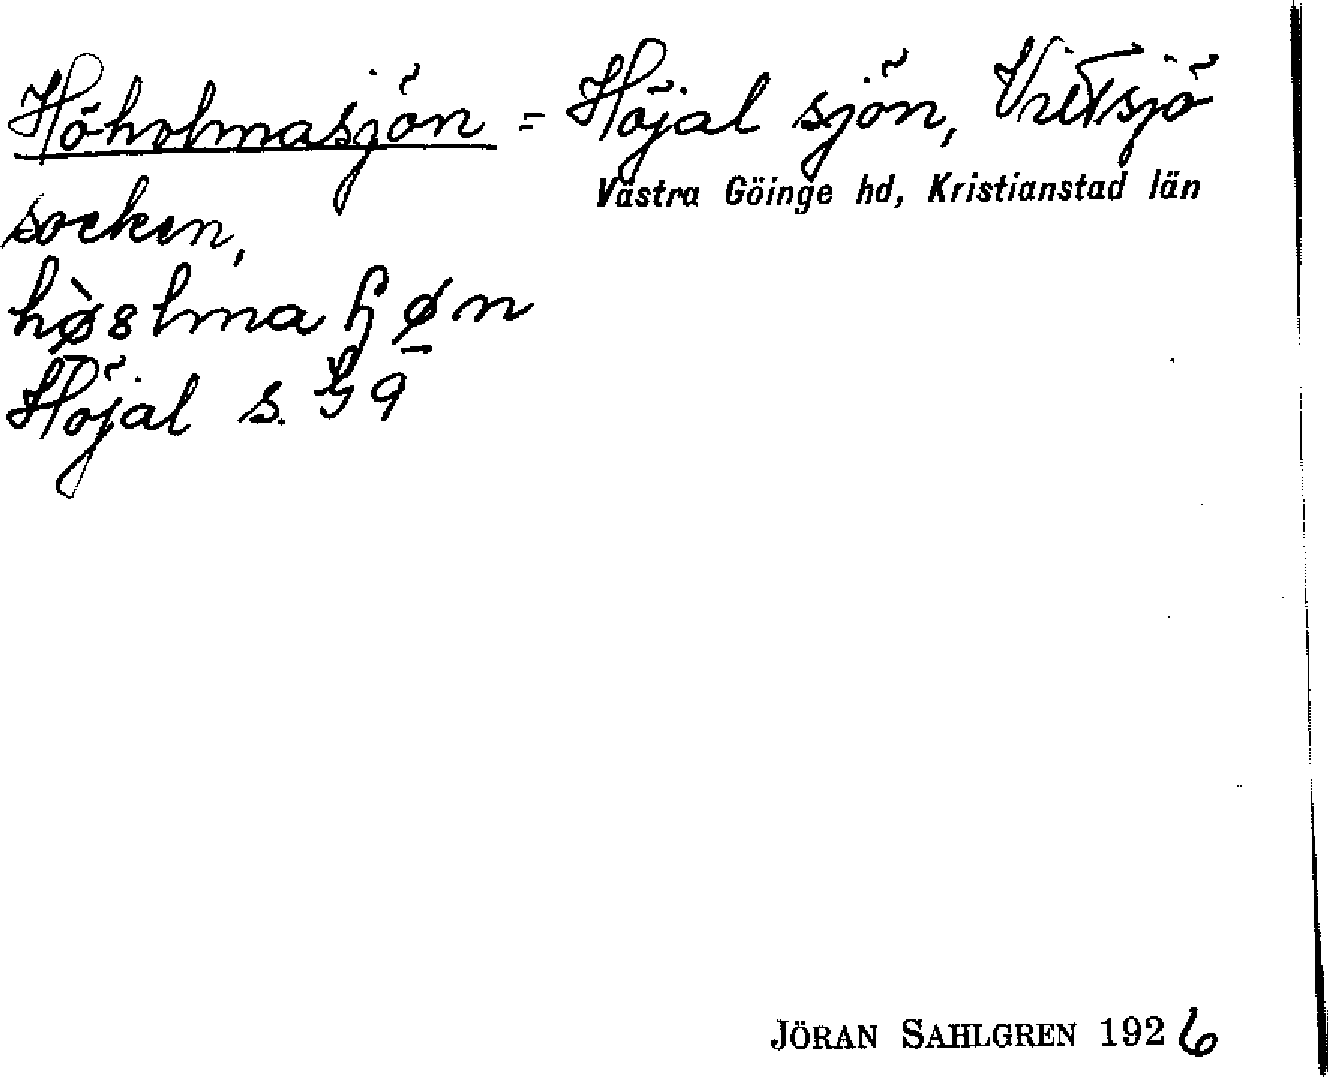 Höholmasjön = Höjal sjön, Vittsjö
Västra Göinge hd, Kristianstad län
socken,
Höjal s.
JÖRAN SAHLGREN 1926